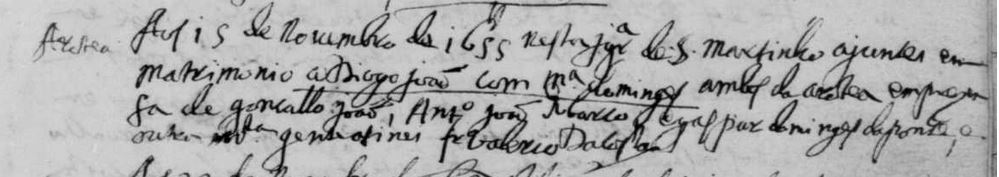 Arotea Aos 15 de Novembro de 1655 nesta Igrª de S. Martinho ajuntei em
matrimonio a Diogo joão com Mª domingues ambos da arotea em prezen
sa de goncallo joão, Antº joão Marco, gaspar domingues da ponte, e
outra mta gente asinei fr Valerio Da Costa